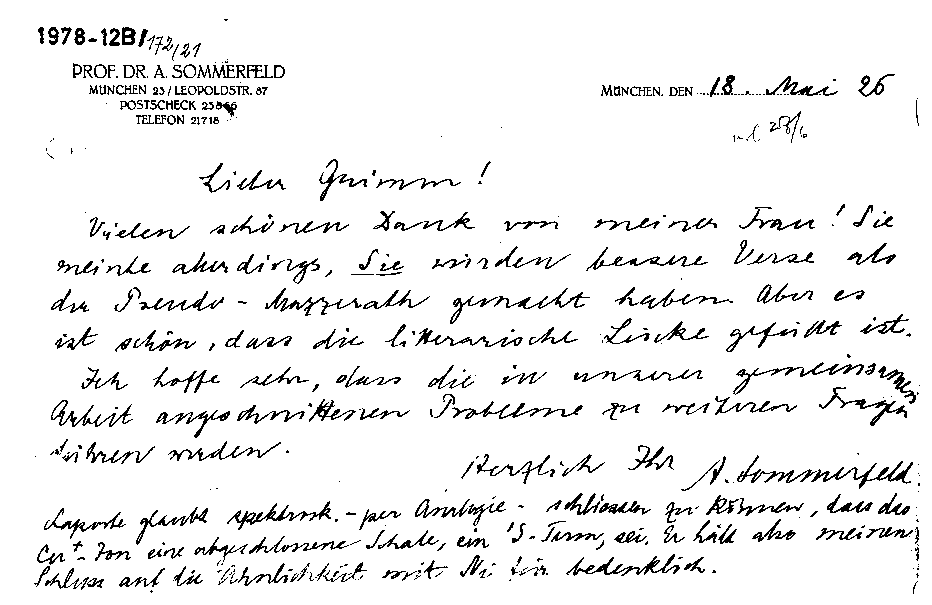 1978-12B/172/21
PROF. DR. A. SOMMERFELD
MÜNCHEN 23 / LEOPOLDSTR. 87
POSTSCHECK 23866
TELEFON 21718
MÜNCHEN, DEN 18. Mai 26
28/6
Lieber Grimm!
Vielen schönen Dank von meiner Frau! Sie
meinte allerdings, Sie würden bessere Verse als
der Pseudo-Mazzerath gemacht haben. Aber es
ist schön, dass die litterarische Lücke gefüllt ist.
Ich hoffe sehr, dass die in unserer gemeinsamen
Arbeit angeschnittenen Probleme zu weiteren Fragen
führen werden.
Herzlich Ihr A. Sommerfeld
Laporte glaubt spektrosk. - per Analogie - schliessen zu können, dass das
Cu+-Ion eine abgeschlossene Schale, ein 1S-Term, sei. Er hält also meinen
Schluss auf die Ähnlichkeit mit Ni für bedenklich.